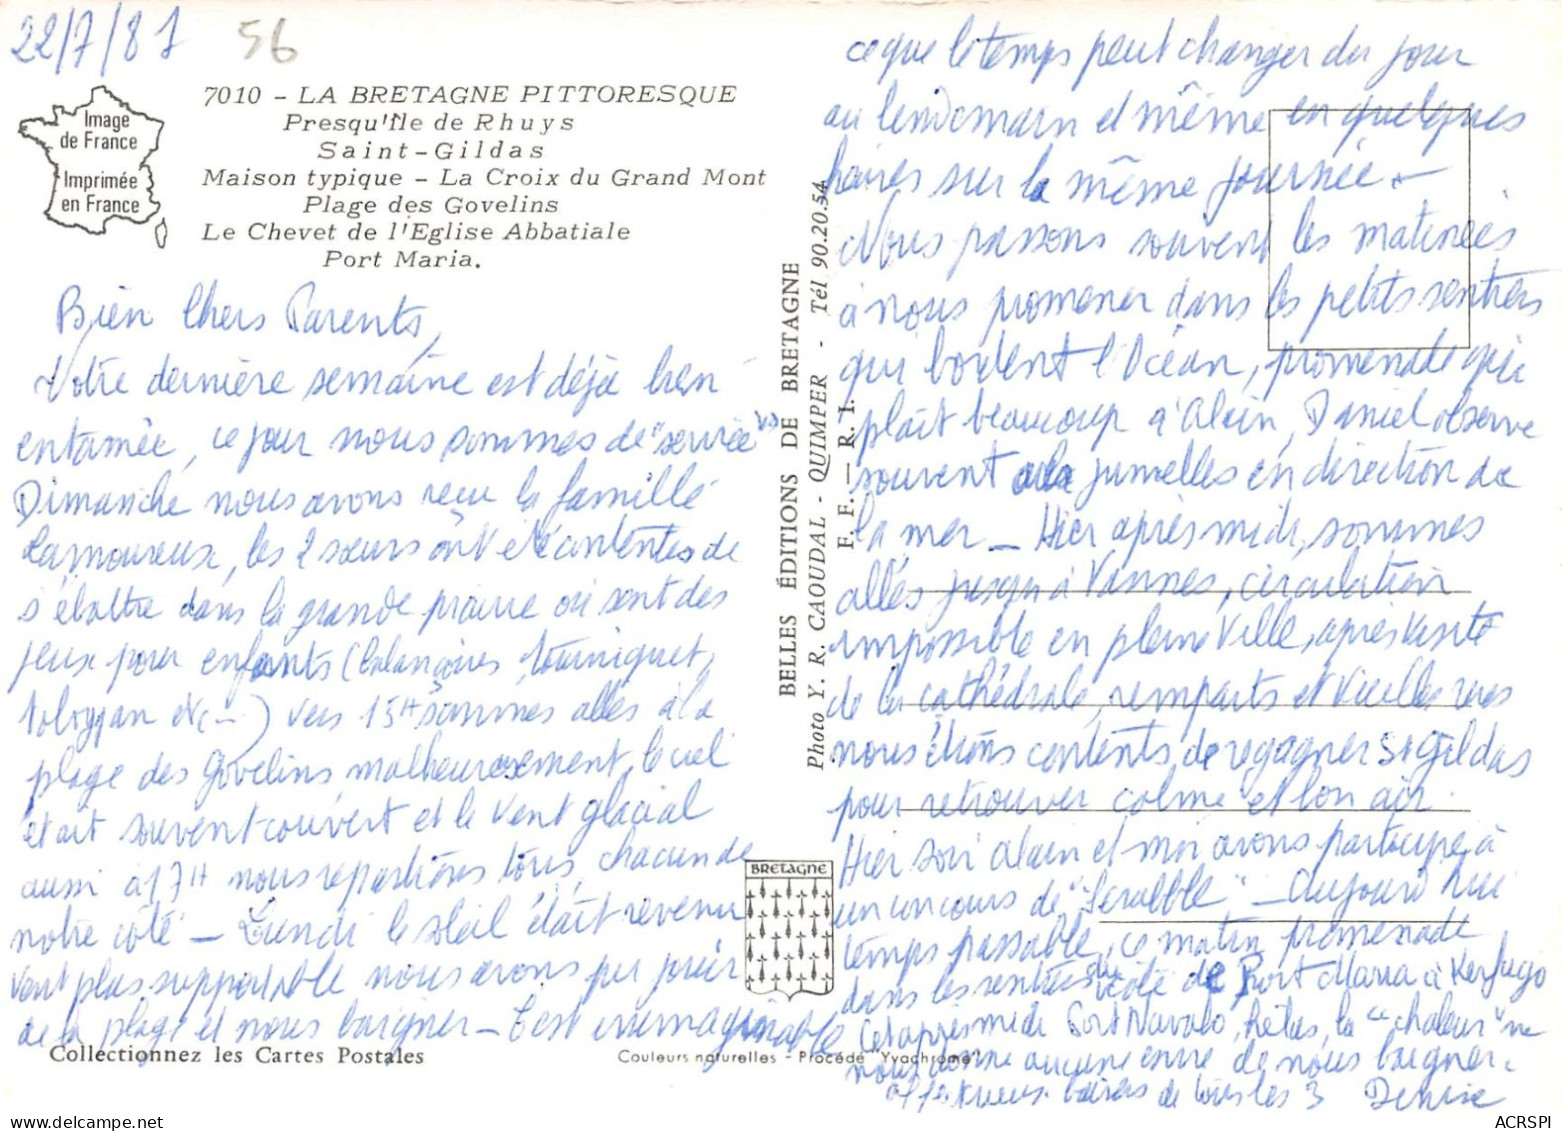 22/7/87
56
Image
de France
Imprimée
en France
7010 - LA BRETAGNE PITTORESQUE
Presqu'île de Rhuys
Saint-Gildas
Maison typique - La Croix du Grand Mont
Plage des Govelins
Le Chevet de l'Eglise Abbatiale
Port Maria.
Bien Chers Parents,
Notre dernière semaine est déjà bien
entamée, ce jour nous sommes de "service"
Dimanche nous avons reçu la famille
Lamoureux, les 2 sœurs ont été contentes de
s'ébattre dans la grande prairie où sont des
jeux pour enfants (balançoires, tourniquet,
tobogan etc...) vers 15H sommes allés à la
plage des Govelins, malheureusement, le ciel
était souvent couvert et le vent glacial
aussi à 17H nous repartions tous, chacun de
notre côté - Lundi le soleil était revenu
vent plus supportable nous avons pu jouir
de la plage et nous baigner - C'est inimaginable
ce que le temps peut changer du jour
au lendemain et même en quelques
heures sur la même journée -
Nous passons souvent les matinées
à nous promener dans les petits sentiers
qui bordent l'Océan, promenade qui
plaît beaucoup à Alain, Daniel observe
souvent à la jumelles en direction de
la mer - Hier après midi, sommes
allés jusqu'à Vannes, circulation
impossible en pleine ville, après visite
de la cathédrale, remparts et vieilles rues
nous étions contents de regagner St Gildas
pour retrouver calme et bon air.
Hier soir Alain et moi avons participé à
un concours de "Scrabble" - Aujourd'hui
temps passable, ce matin promenade
dans les sentiers côté de Port Maria à Kerfago
Cet après midi Port Navalo, hélas, la "chaleur" ne
nous donne aucune envie de nous baigner.
affectueux baisers de tous les 3 Denise
BELLES ÉDITIONS DE BRETAGNE
Photo Y. R. CAOUDAL - QUIMPER - Tél 90.20.54
F. F. - R. I.
BRETAGNE
Collectionnez les Cartes Postales
Couleurs naturelles - Procédé "Yvachrome"
ACRSPI